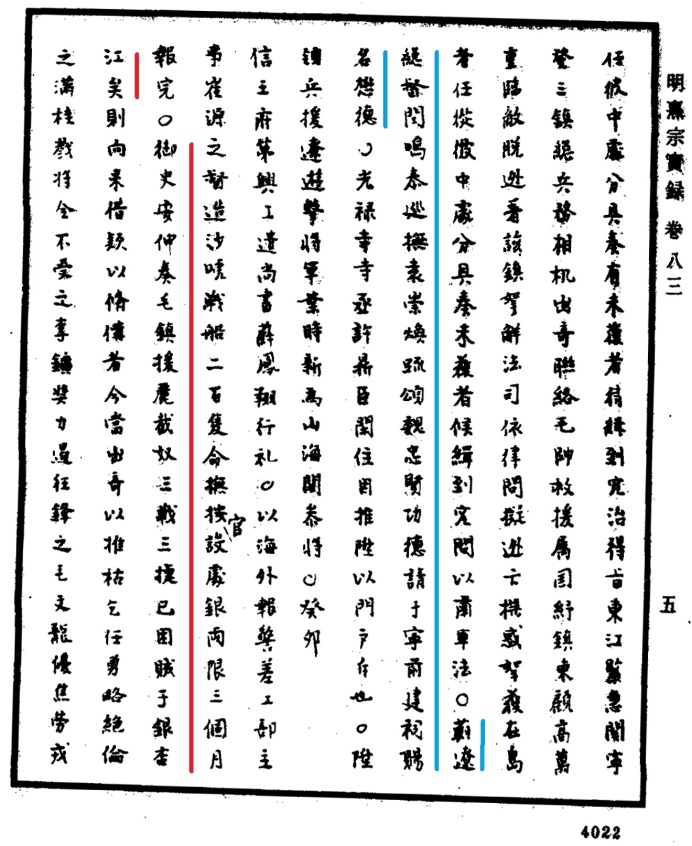 明熹宗實錄 卷八三
五
任彼中處分具奏有未獲者待緝到究治得旨東江緊急關寧
登三鎮總兵務相机出奇聯絡毛帥救援属国紓鎮東顧高萬
重臨敵脫逃著該鎮拏解法司依律問擬逃亡撰惑拏獲在島
者任從彼中處分具奏未獲者候緝到究問以肅軍法○薊遼
總督閻鳴泰巡撫袁崇煥疏頌魏忠賢功德請于寧前建祠賜
名懋德○光禄寺寺丞許鼎臣閑住因推陞以門户斥也○陞
鎮兵援遼遊擊將軍葉時新為山海關叅將○癸卯
信王府第興工遣尚書薛鳳翔行礼○以海外報獎差工部主
事崔源之督造沙唬戰船二百隻命撫按設處銀兩限三個月
官
報完○御史安伸奏毛鎮援麗截奴三戰三捷已困賊于銀杏
江矣則向来借款以脩備者今當出奇以推枯乞任勇略絕倫
之滿桂戮將令不受之李鑛奬力遏狂鋒之毛文龍優焦勞戎
4022